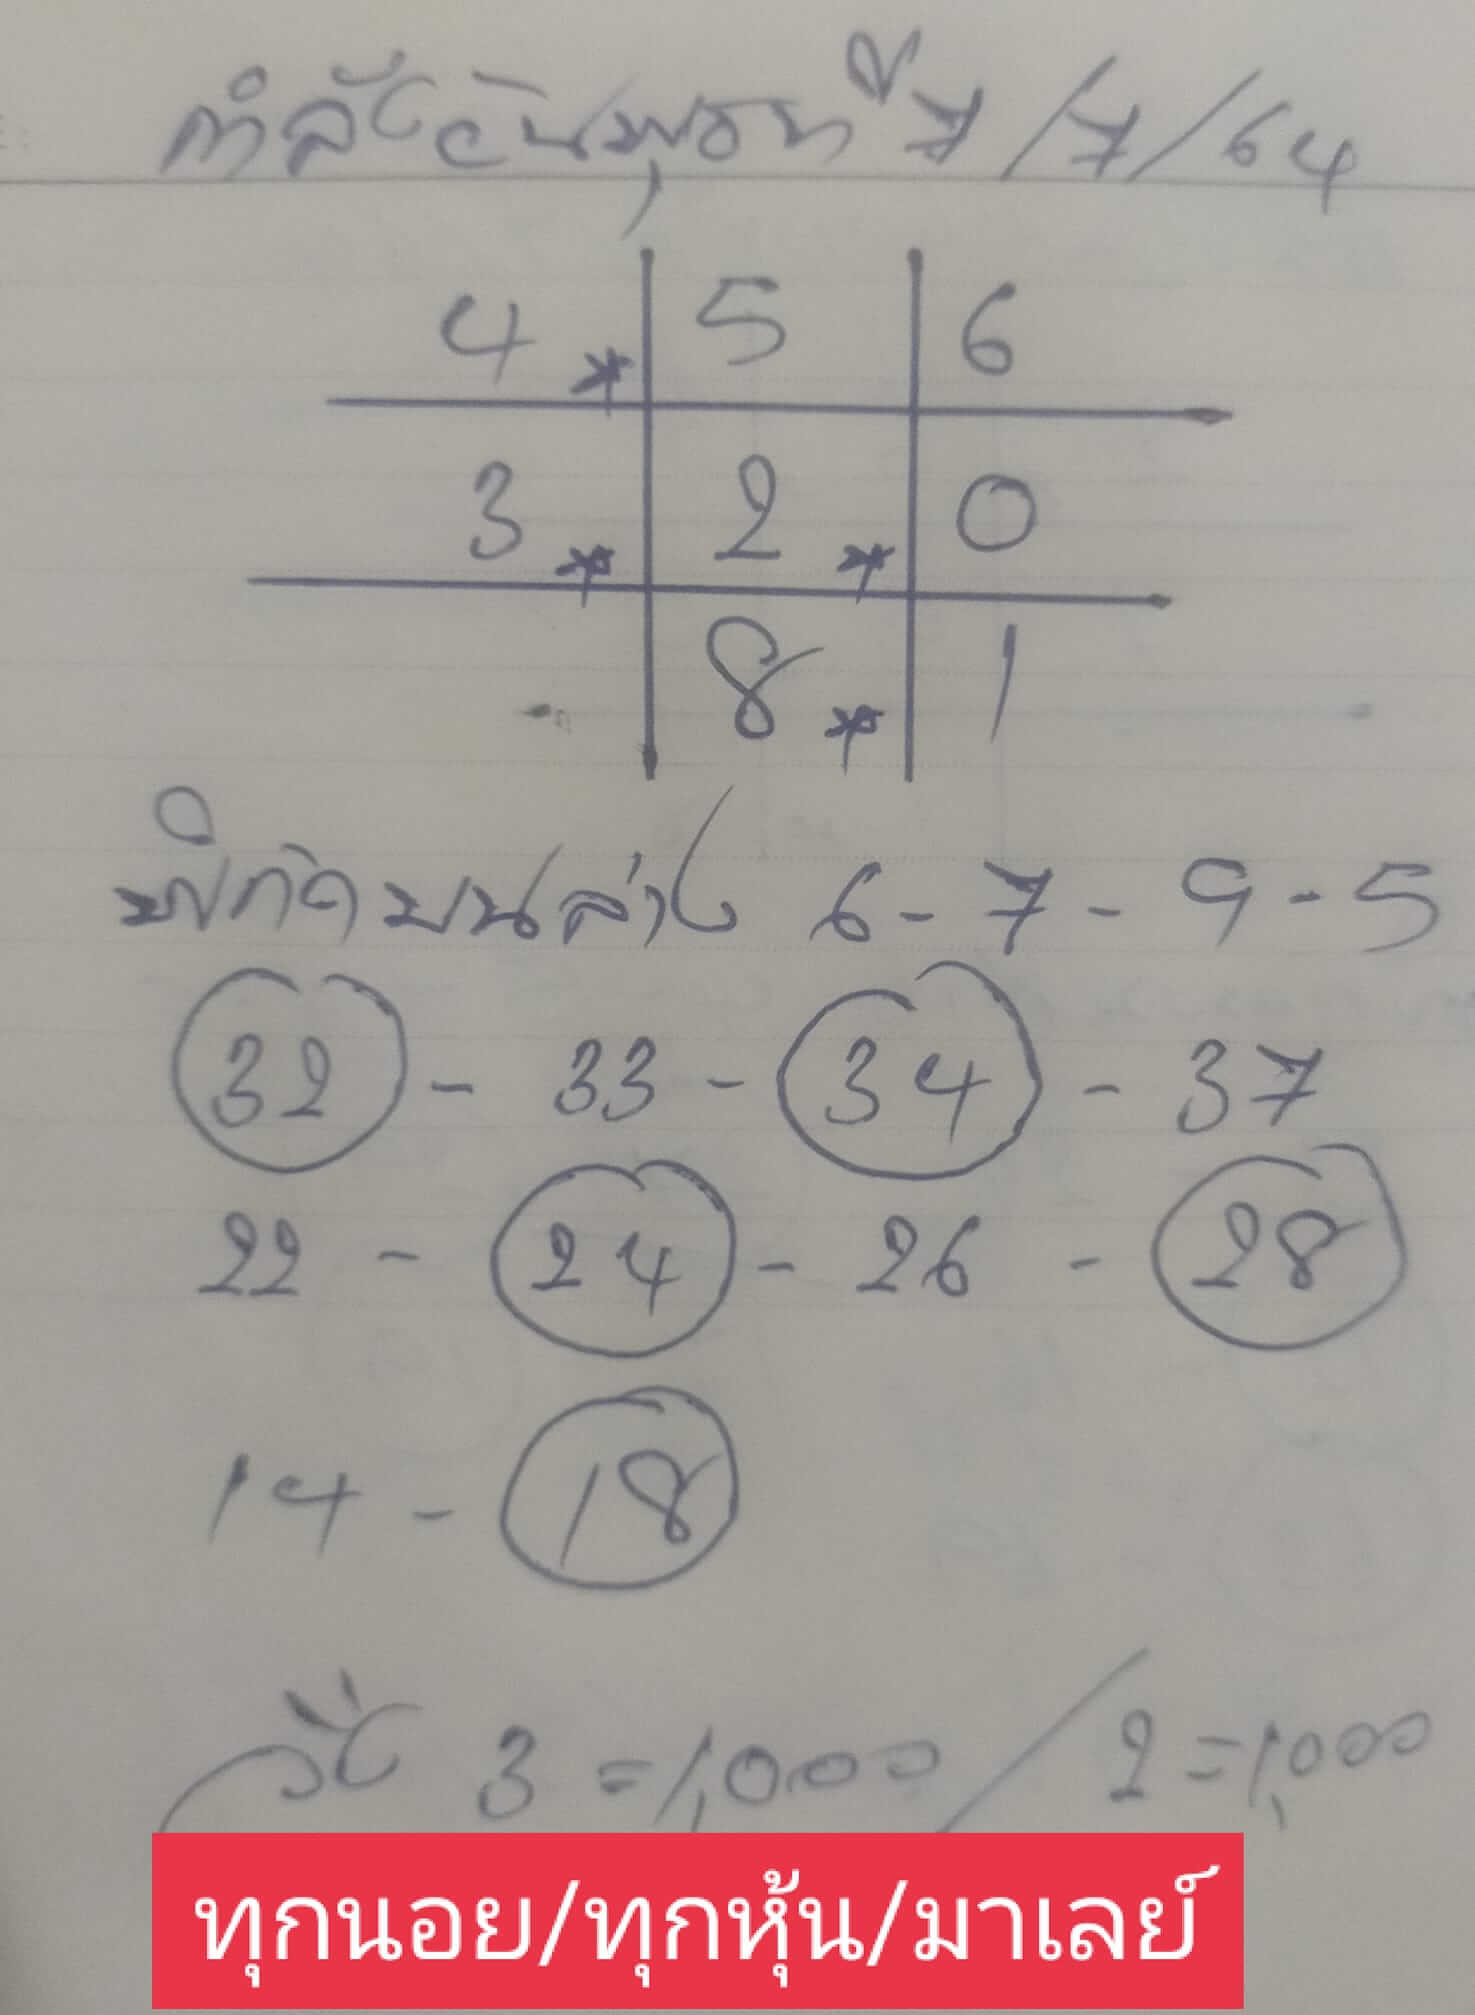 กำลังวันพุธที่ 7/7/64
4* 5 6
3* 2* 0
8* 1
พิกัดบนล่าง 6-7-9-5
32 - 33 - 34 - 37
22 - 24 - 26 - 28
14 - 18
วิ่ง 3 = 1,000 / 2 = 1,000
ทุกนอย/ทุกหุ้น/มาเลย์